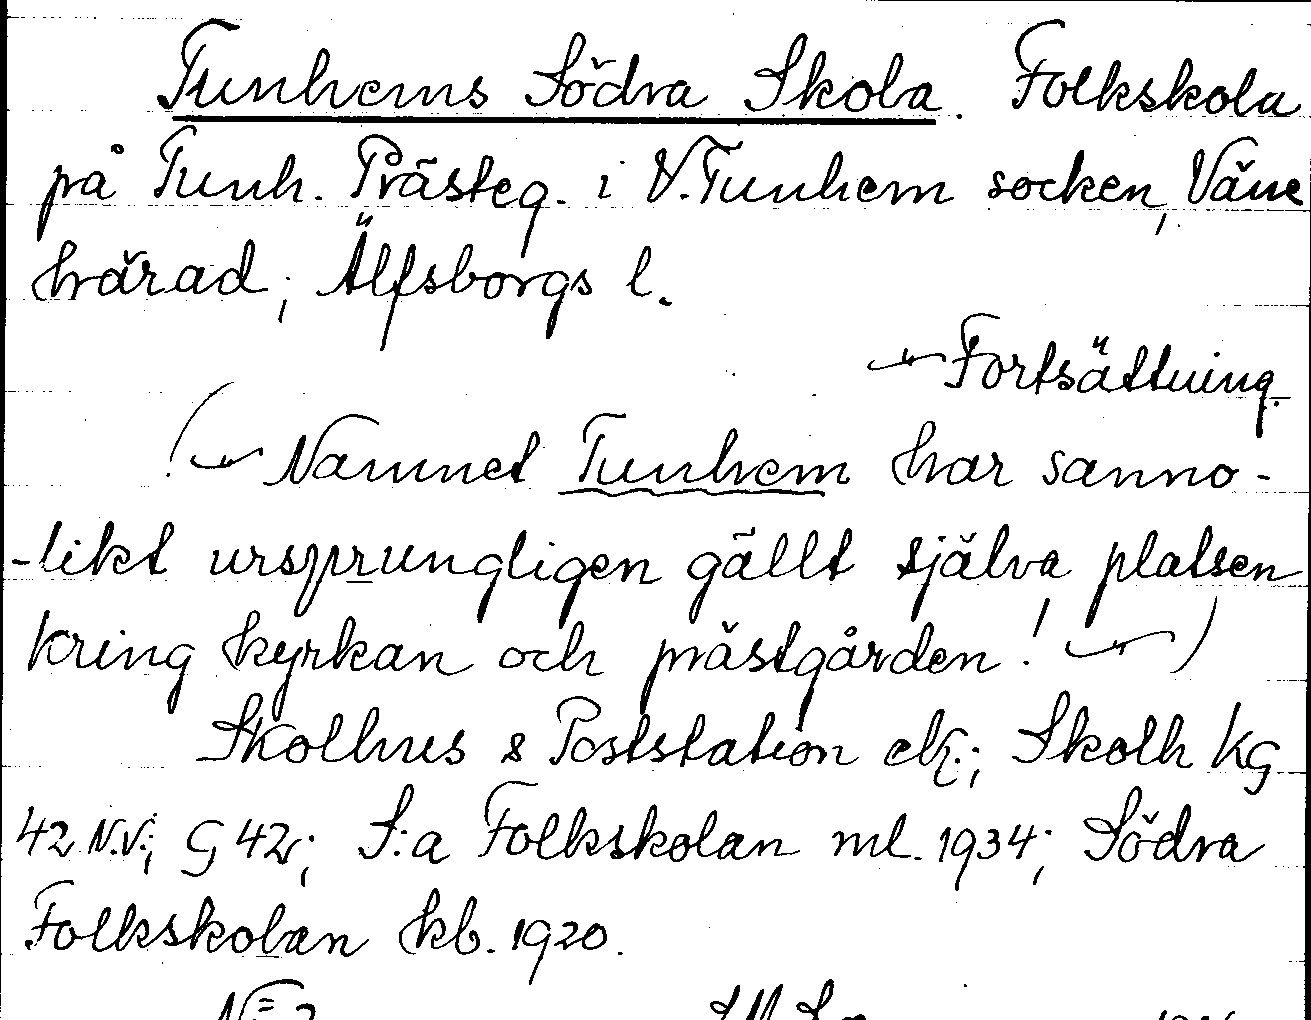 Tunhems Södra Skola. Folkskola
på Tunh. Prästeg. i V. Tunhem socken, Väne
härad, Älfsborgs l.
Fortsättning.
( Namnet Tunhem har sanno-
-likt ursprungligen gällt själva platsen
kring kyrkan och prästgården! )
Skolhus & Poststation ek.; Skolh KG
42 N.V.; G 42; S:a Folkskolan ml. 1934; Södra
Folkskolan kb. 1920.